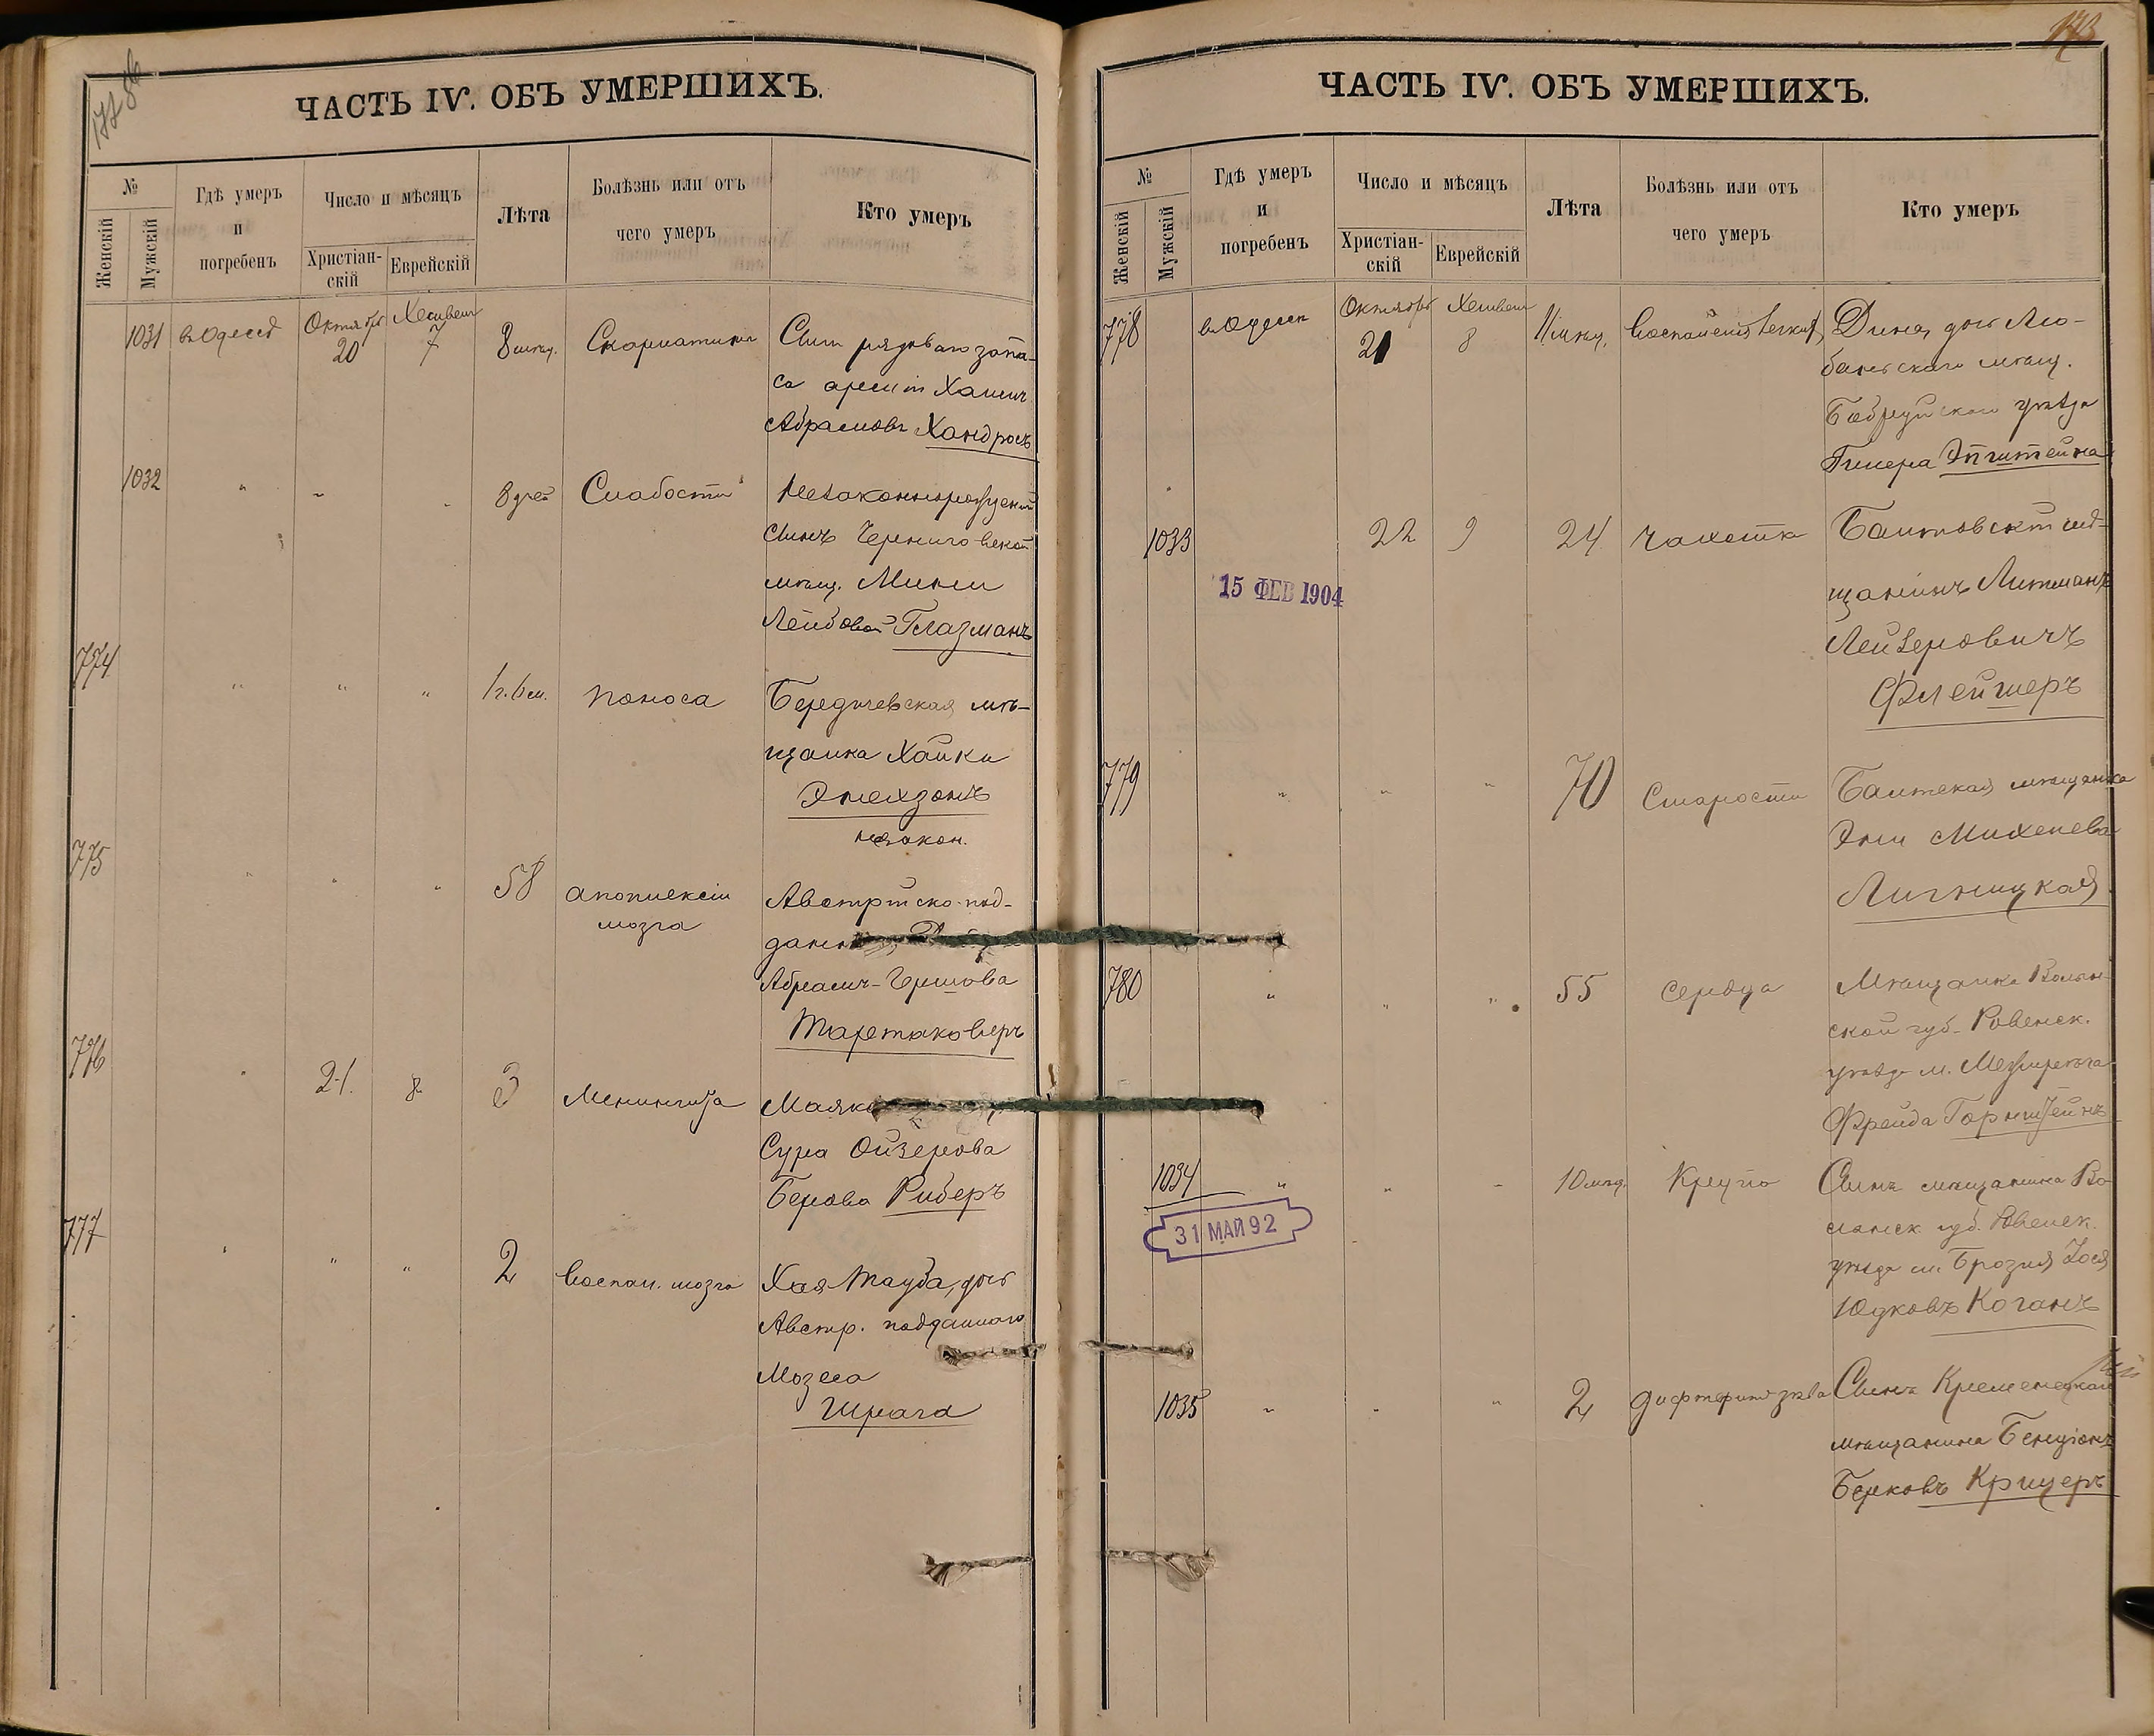 172 об
ЧАСТЬ IV. ОБЪ УМЕРШИХЪ.
№
Женскій
Мужскій
Гдѣ умеръ
и
погребенъ
Число и мѣсяцъ
Христіан-
скій
Еврейскій
Лѣта
Болѣзнь или отъ
чего умеръ
Кто умеръ
1031 въ Одессѣ Октября 20 Хешвенъ 7 8 мѣсяц. Скарлатина Сынъ рядоваго запа-
са арміи Хаимъ
Абрамовъ Хандросъ
1032 " " " 8 дней Слабости Незаконнорожденный
сынъ Черниговской
мѣщ. Минии
Лейбовой Глазманъ
774 " " " 1 г. 6 м. поноса Бердичевская мѣ-
щанка Хайка
Энехзонъ
незакон.
775 " " " 58 апоплексіи Австрійско-под-
мозга
Абрамъ-Гершова
Тартаковеръ
776 " 21. 8 3 Менингита
Сура Ойзерова
Берова Риберъ
777 " " " 2 воспал. мозга Хая Тауба, дочь
Австр. подданнаго
Мозеса
Шрага
173
ЧАСТЬ IV. ОБЪ УМЕРШИХЪ.
№
Женскій
Мужскій
Гдѣ умеръ
и
погребенъ
Число и мѣсяцъ
Христіан-
скій
Еврейскій
Лѣта
Болѣзнь или отъ
чего умеръ
Кто умеръ
778 въ Одессѣ Октября 21 Хешвенъ 8 11 мѣсяц. Воспаленія легкихъ Дина, дочь Лю-
баньскаго мѣщ.
Бобруйскаго уѣзда
Гимера Эпштейна
1033 22 9 24 чахотка Балтовскій мѣ-
щанинъ Литманъ
15 ФЕВ 1904
Лейзеровичъ
Флейшеръ
779 " " " 70 Старости Балтская мѣщанка
Эти Михелева
Лигницкая
780 " " " 55 сердца Мѣщанка Волын-
ской губ. Ровенск.
уѣзда м. Межирѣча
Фрейда Горнштейнъ
1034 " " " 10 мѣс. Крупъ Сынъ мѣщанина Во-
лынск. губ. Ровенск.
31 МАЙ 92
уѣзда м. Брозня Іося
Юдковъ Коганъ
1035 " " " 2 дифтеритъ зѣва Сынъ Кременецкаго
мѣщанина Бенціонъ
Берковъ Крицеръ